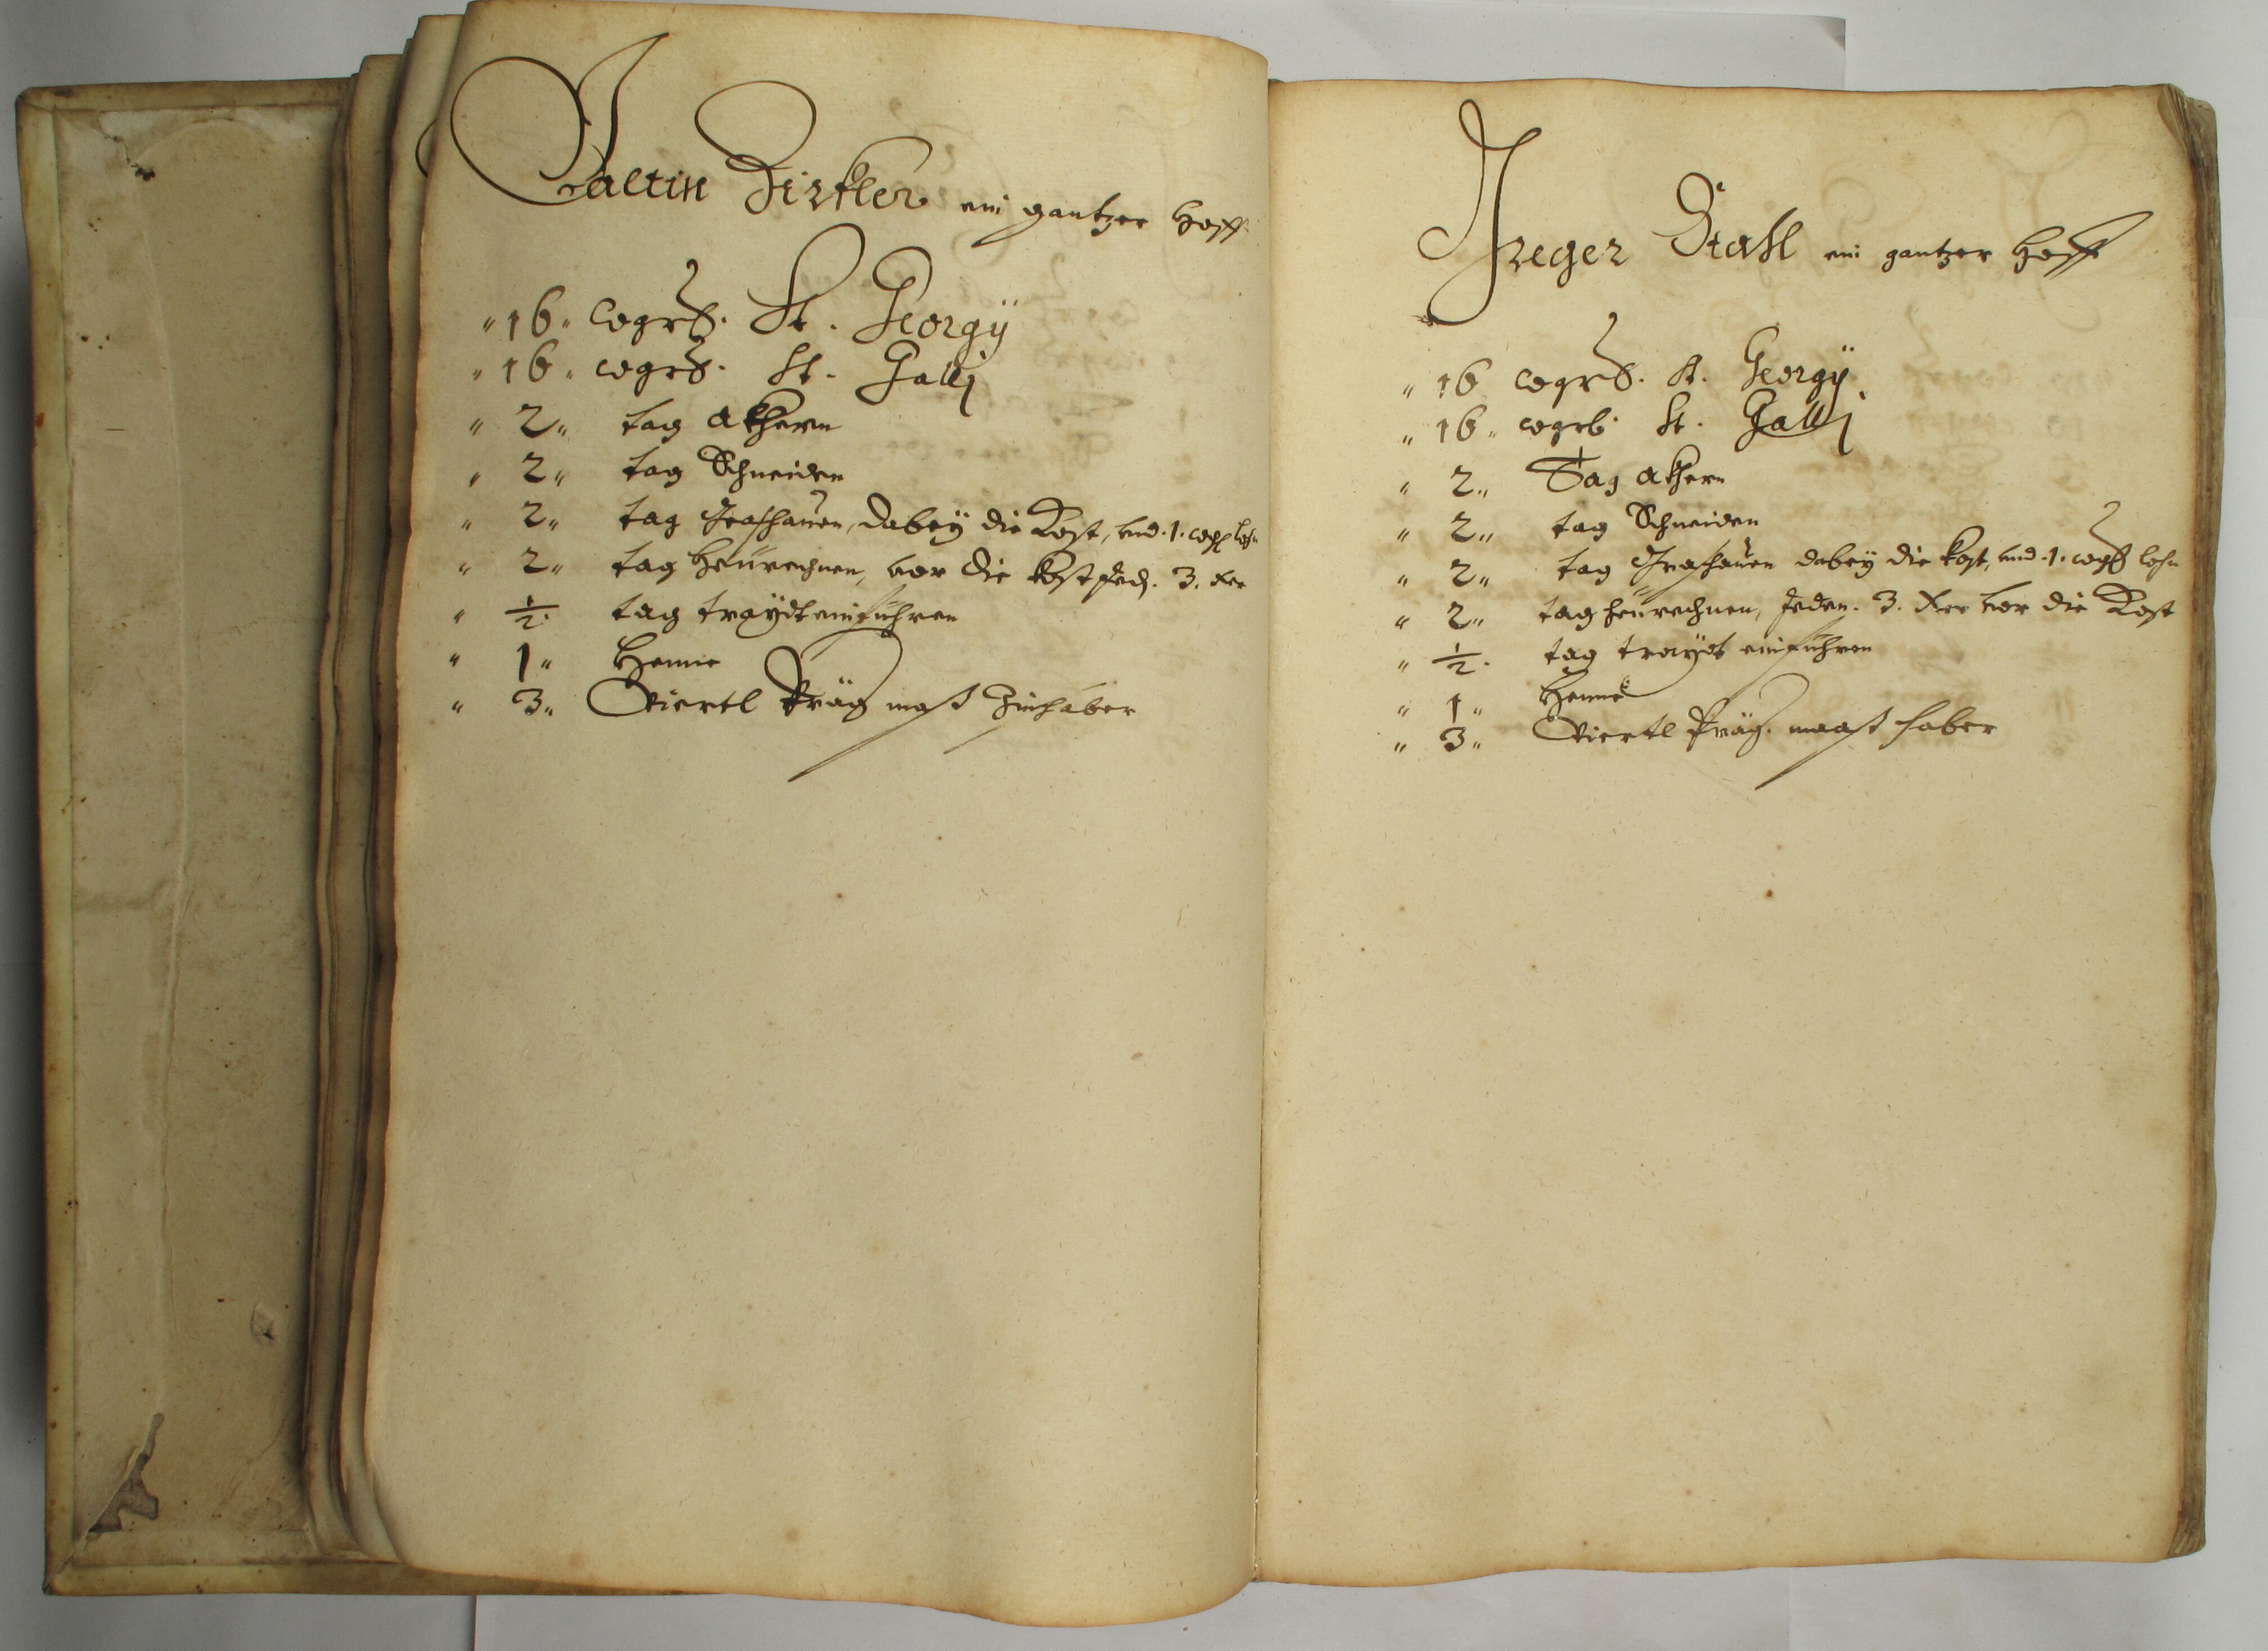 Valtin Zirkler ein gantzer Hoff
" 16 " wgrß. St. Georgÿ
" 16 " wgrß. St. Galli
" 2 " tag akhern
" 2 " tag Schneiden
" 2 " tag Graßhauen, dabeÿ die Kost, vnd .1. lohn
" 2 " tag Heürechnen, vor die Kost Jed. 3. Kr
" ½ " tag traÿdt einführen
" 1 " Henne
" 3 " Viertl Präg maß Zinßhaber
Greger Stahl ein gantzer Hoff
" 16 wgrß. St. Georgÿ
" 16 " wgrß. St. Galli
" 2 " Tag akhern
" 2 " tag Schneiden
" 2 " tag Graßhauen dabeÿ die Kost, vnd .1. lohn
" 2 " tag heürechnen, Jeden. 3. Kr vor die Kost
" ½ . tag traÿdt einführen
" 1 " Henne
" 3 " Viertl Präg. maaß haber